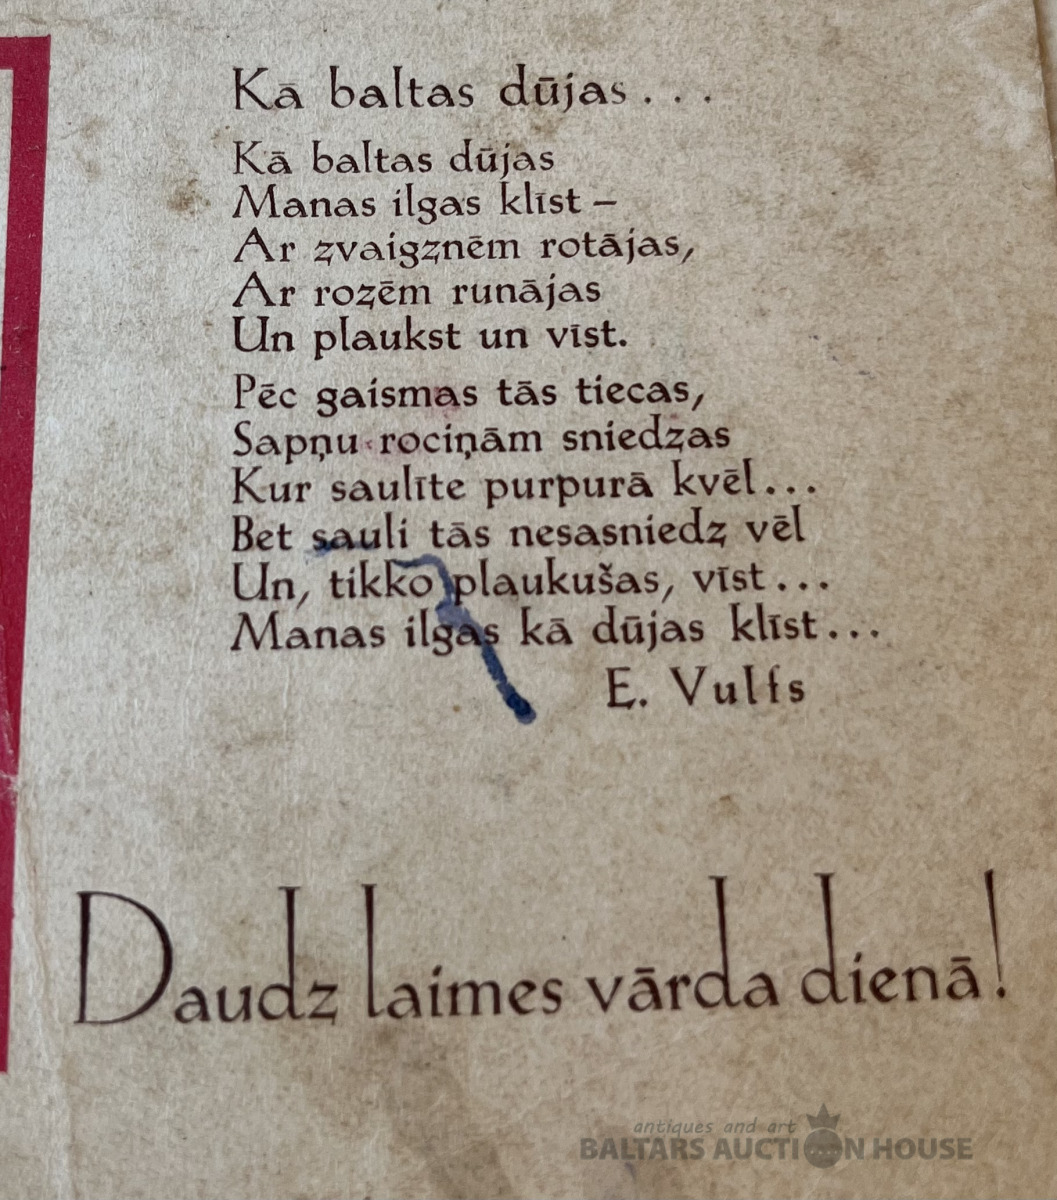 Kā baltas dūjas...
Kā baltas dūjas
Manas ilgas klīst –
Ar zvaigznēm rotājas,
Ar rozēm runājas
Un plaukst un vīst.
Pēc gaismas tās tiecas,
Sapņu rociņām sniedzas
Kur saulīte purpurā kvēl...
Bet sauli tās nesasniedz vēl
Un, tikko plaukušas, vīst...
Manas ilgas kā dūjas klīst...
E. Vulfs
Daudz laimes vārda dienā!
antiques and art
BALTARS AUCTION HOUSE